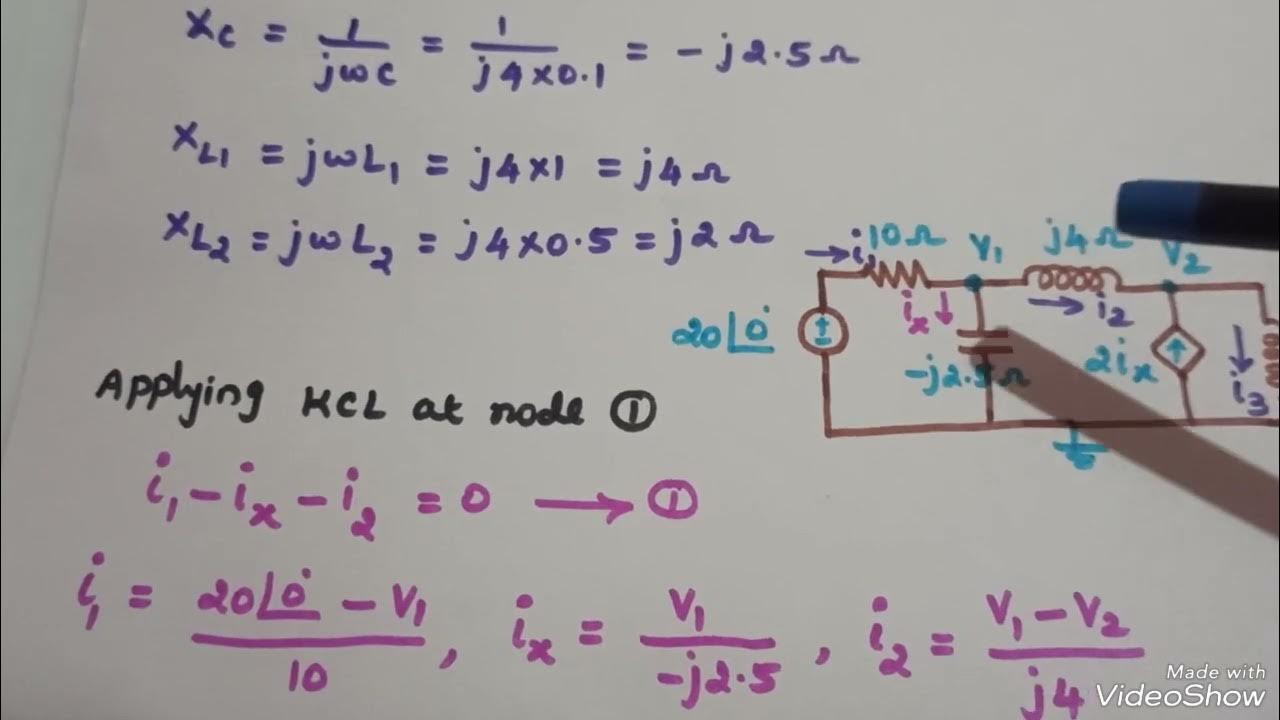 X_C = 1/jωC = 1/j4×0.1 = -j2.5Ω
X_L1 = jωL_1 = j4×1 = j4Ω
X_L2 = jωL_2 = j4×0.5 = j2Ω
i_1 10Ω V_1 j4Ω V_2
i_x i_2
20∠0°
-j2.5Ω 2i_x i_3
Applying KCL at node ①
i_1 - i_x - i_2 = 0 → ①
i_1 = 20∠0° - V_1 / 10 , i_x = V_1 / -j2.5 , i_2 = V_1 - V_2 / j4
Made with
VideoShow